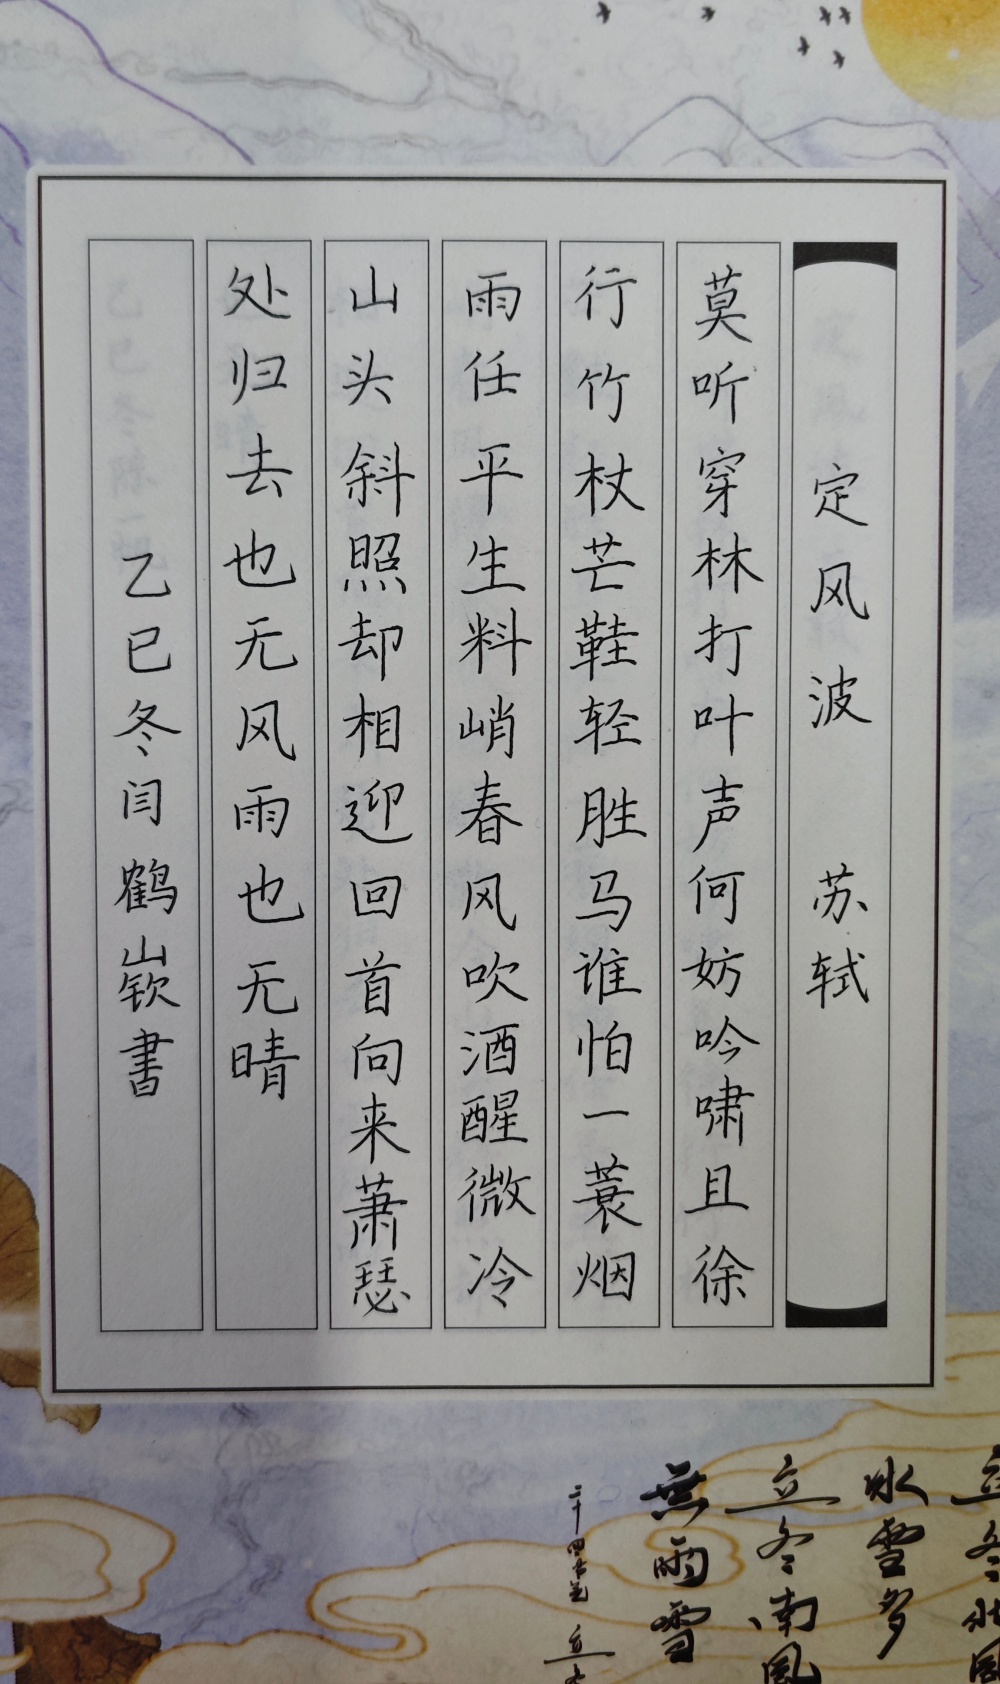 定风波 苏轼
莫听穿林打叶声何妨吟啸且徐
行竹杖芒鞋轻胜马谁怕一蓑烟
雨任平生料峭春风吹酒醒微冷
山头斜照却相迎回首向来萧瑟
处归去也无风雨也无晴
乙巳冬闫鹤嶔書
立冬北風
冰雪多
立冬南風
無雨雪
二十四节气 立冬